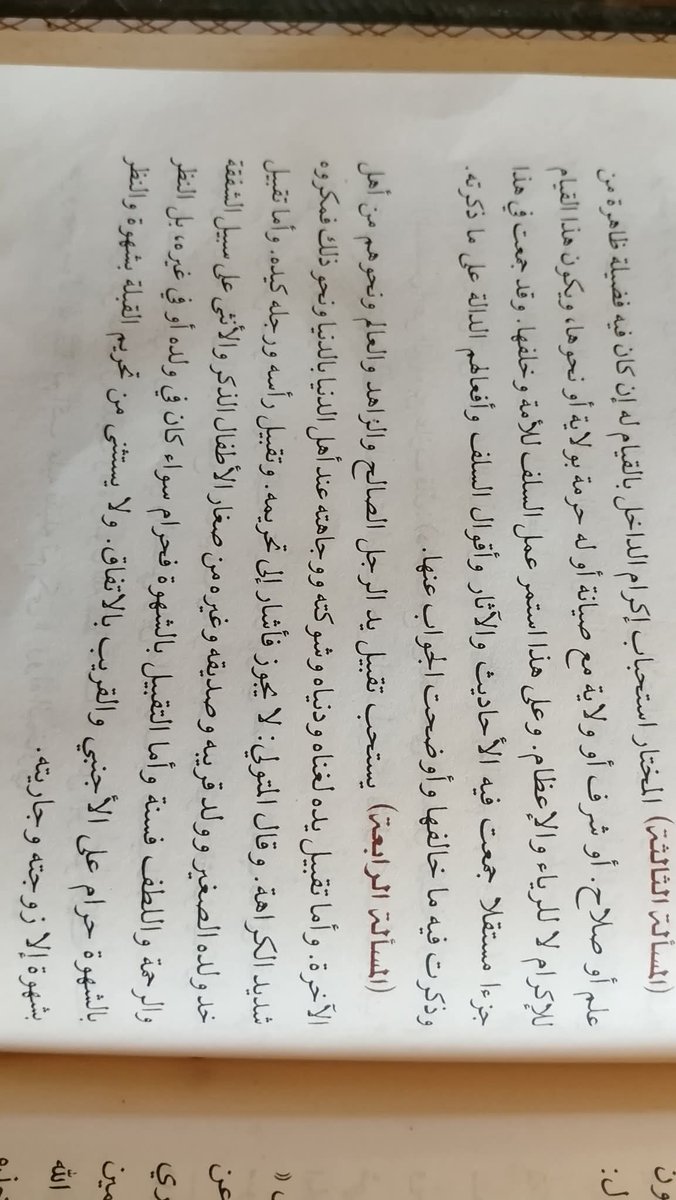 (المسألة الثالثة) المختار استحباب إكرام الداخل بالقيام له إن كان فيه فضيلة ظاهرة من
علم أو صلاح. أو شرف أو ولاية مع صيانة أو له حرمة بولاية أو نحوها، ويكون هذا القيام
للإكرام لا للرياء والإعظام. وعلى هذا استمر عمل السلف للأمة وخلفها. وقد جمعت في هذا
جزءا مستقلا جمعت فيه الأحاديث والآثار وأقوال السلف وأفعالهم الدالة على ما ذكرته.
وذكرت فيه ما خالفها وأوضحت الجواب عنها.
(المسألة الرابعة) يستحب تقبيل يد الرجل الصالح والزاهد والعالم ونحوهم من أهل
الآخرة. وأما تقبيل يده لغناه ودنياه وشوكته ووجاهته عند أهل الدنيا بالدنيا ونحو ذلك فمكروه
شديد الكراهة. وقال المتولي: لا يجوز فأشار إلى تحريمه. وتقبيل رأسه ورجله كيده. وأما تقبيل
خد ولده الصغير وولد قريبه وصديقه وغيره من صغار الأطفال الذكر والأنثى على سبيل الشفقة
والرحمة واللطف فسنة وأما التقبيل بالشهوة فحرام سواء كان في ولده أو في غيره، بل النظر
بالشهوة حرام على الأجنبي والقريب بالاتفاق. ولا يستثنى من تحريم القبلة بشهوة والنظر
بشهوة إلا زوجته وجاريته.
عن
الله